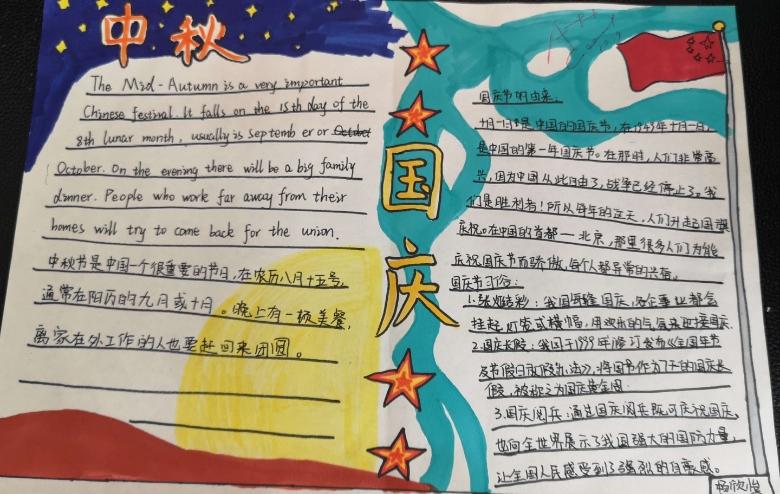 中秋
The Mid-Autumn is a very important
Chinese festival. It falls on the 15th day of the
8th lunar month, usually is September or
October. On the evening there will be a big family
dinner. People who work far away from their
homes will try to come back for the union.
中秋节是中国一个很重要的节日,在农历八月十五号,
通常在阳历的九月或十月。晚上有一顿美餐,
离家在外工作的人也要赶回来团圆。
国庆
国庆节的由来.
十月一日是中国的国庆节,在1949年十月一日,
是中国的第一年国庆节。在那时,人们非常高
兴,因为中国从此自由了,战争已经停止了。我
们是胜利者!所以每年的这天,人们升起国旗
庆祝。在中国的首都——北京,那里很多人们为能
庆祝国庆节而骄傲,每个人都异常的兴奋。
国庆节习俗:
1.张灯结彩:我国每逢国庆,各企事业都会
挂起灯笼或横幅,用欢乐的气氛来迎接国庆.
2.国庆长假:我国于1999年修订发布《全国年节
及节假日放假办法》,将国节作为7天的国庆长
假,被称之为国庆黄金周.
3.国庆阅兵:通过国庆阅兵既可庆祝国庆,
也向全世界展示了我国强大的国防力量,
让全国人民感受到了强烈的自豪感。
杨欣悦